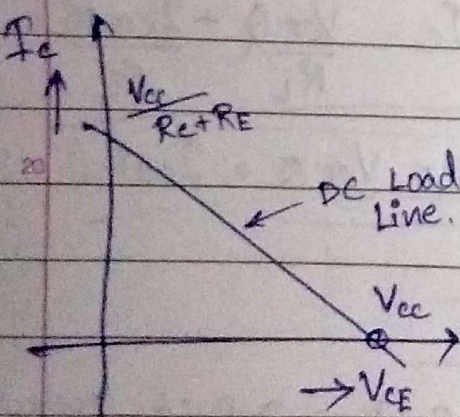 Ic
Vcc
Rc+RE
20
DC Load
Line.
Vcc
→ VCE